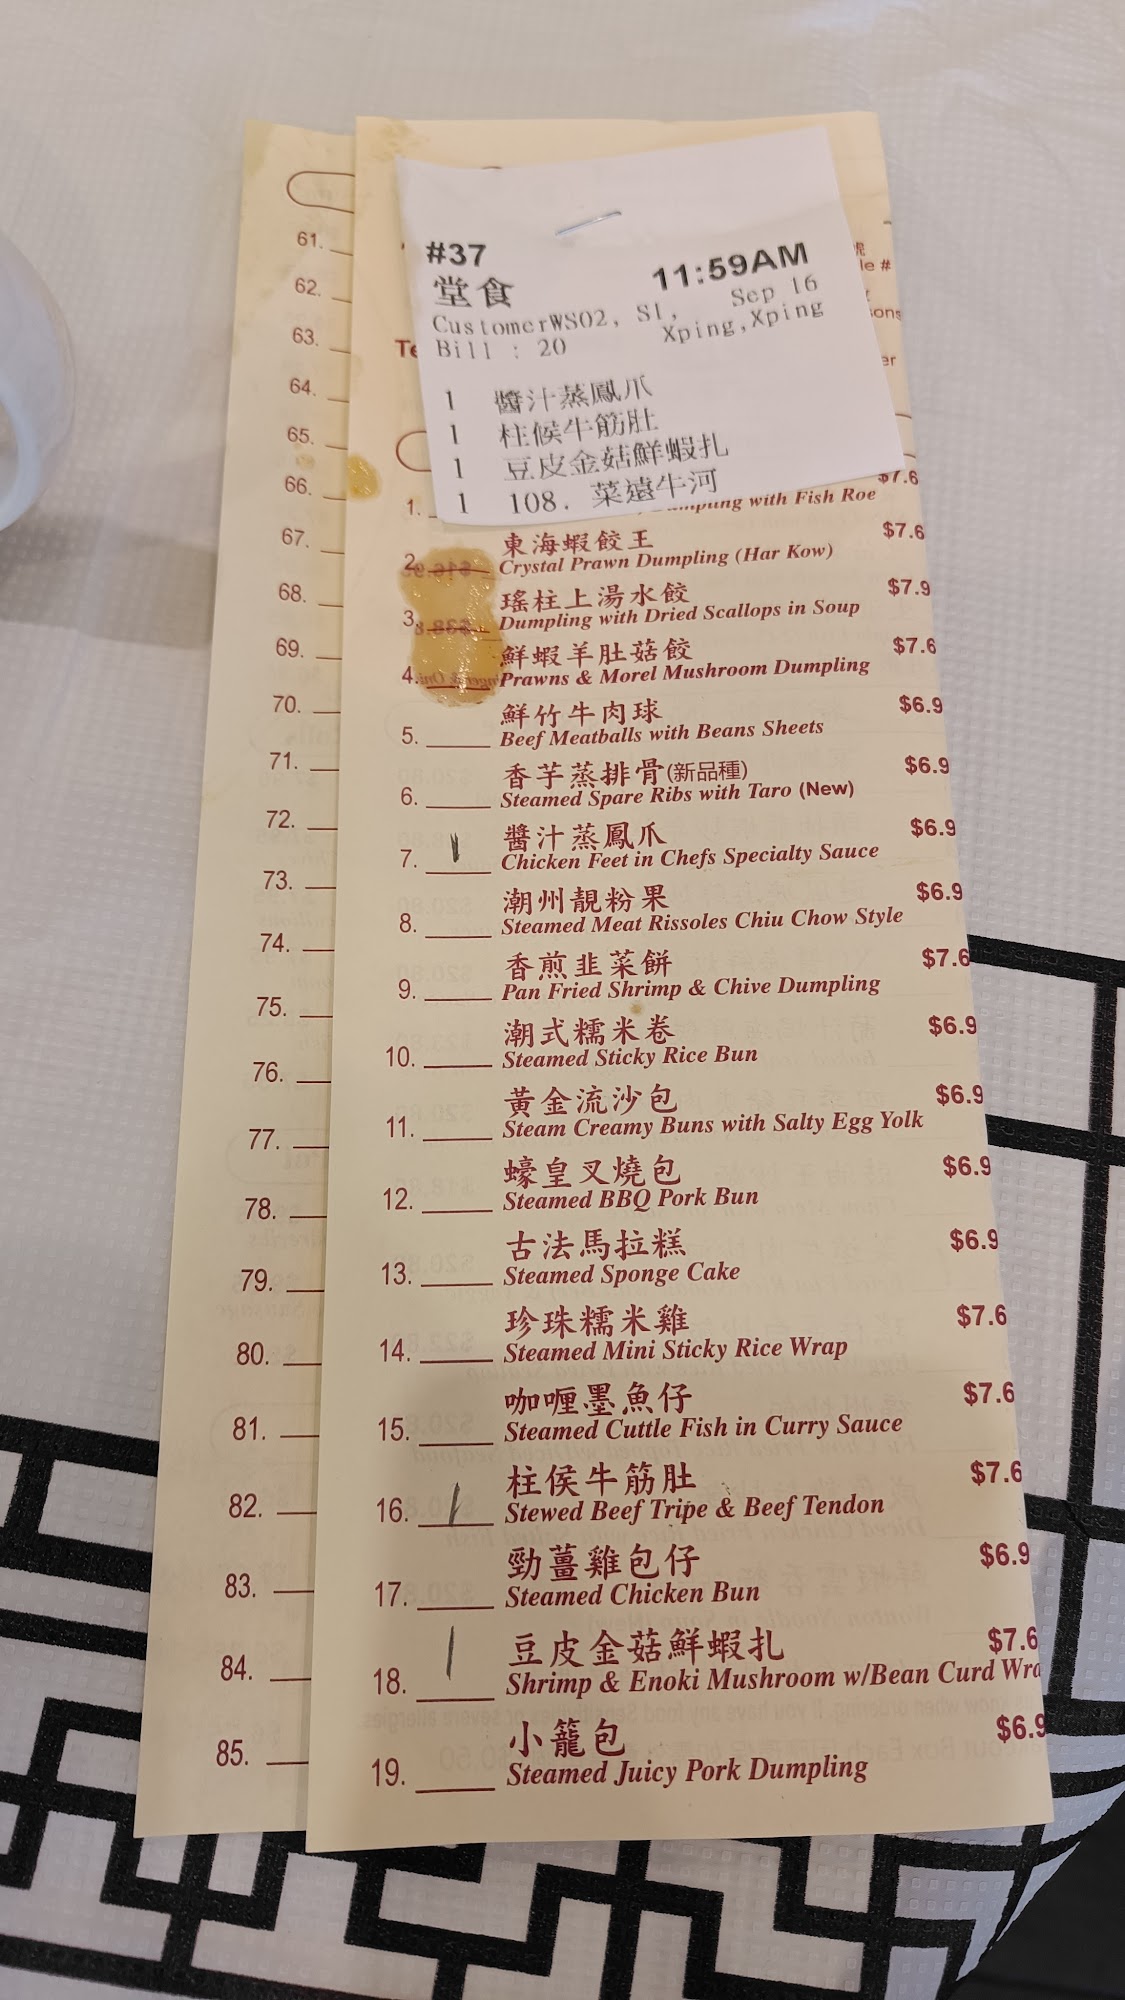 #37
11:59AM
堂食
Sep 16
CustomerWS02, S1,
Xping,Xping
Bill : 20
1 醬汁蒸鳳爪
1 柱候牛筋肚
1 豆皮金菇鮮蝦扎
1 108. 菜遠牛河
1. with Fish Roe $7.6
2. 東海蝦餃王 $7.6
Crystal Prawn Dumpling (Har Kow)
3. 瑤柱上湯水餃 $7.9
Dumpling with Dried Scallops in Soup
4. 鮮蝦羊肚菇餃 $7.6
Prawns & Morel Mushroom Dumpling
5. 鮮竹牛肉球 $6.9
Beef Meatballs with Beans Sheets
6. 香芋蒸排骨(新品種) $6.9
Steamed Spare Ribs with Taro (New)
7. 醬汁蒸鳳爪 $6.9
Chicken Feet in Chefs Specialty Sauce
8. 潮州靚粉果 $6.9
Steamed Meat Rissoles Chiu Chow Style
9. 香煎韭菜餅 $7.6
Pan Fried Shrimp & Chive Dumpling
10. 潮式糯米卷 $6.9
Steamed Sticky Rice Bun
11. 黃金流沙包 $6.9
Steam Creamy Buns with Salty Egg Yolk
12. 蠔皇叉燒包 $6.9
Steamed BBQ Pork Bun
13. 古法馬拉糕 $6.9
Steamed Sponge Cake
14. 珍珠糯米雞 $7.6
Steamed Mini Sticky Rice Wrap
15. 咖喱墨魚仔 $7.6
Steamed Cuttle Fish in Curry Sauce
16. 柱侯牛筋肚 $7.6
Stewed Beef Tripe & Beef Tendon
17. 勁薑雞包仔 $6.9
Steamed Chicken Bun
18. 豆皮金菇鮮蝦扎 $7.6
Shrimp & Enoki Mushroom w/Bean Curd
19. 小籠包 $6.9
Steamed Juicy Pork Dumpling
61.
62.
63.
64.
65.
66.
67.
68.
69.
70.
71.
72.
73.
74.
75.
76.
77.
78.
79.
80.
81.
82.
83.
84.
85.